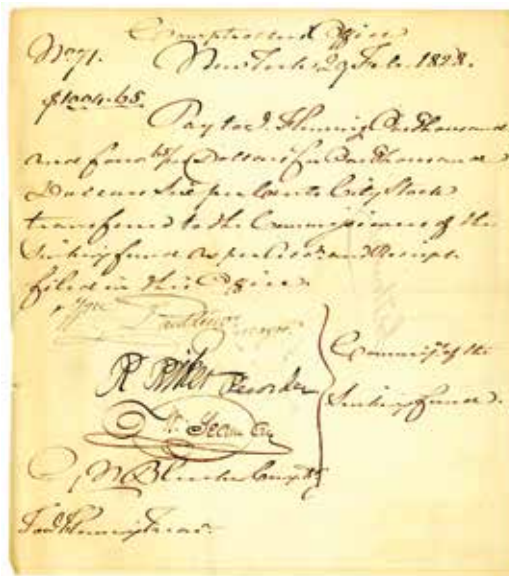 Comptrollers Office
No 71. New York 29 Feb. 1828.
$1004.65
Pay to J. Fleming One thousand
and four 65/100 Dollars for One thousand
Dollars Six per Cents City Stock
transferred to the Commissioners of the
Sinking fund as per and Receipt
filed in this Office.
Wm Paulding Mayor
R Riker Recorder
Commisrs of the
Sinking fund.
Bleecker Compt
Fleming Treasr